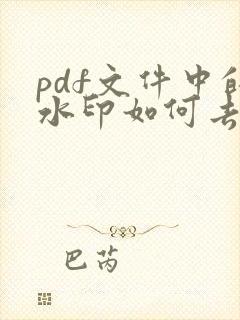 pdf文件中的
水印如何去
巴芮